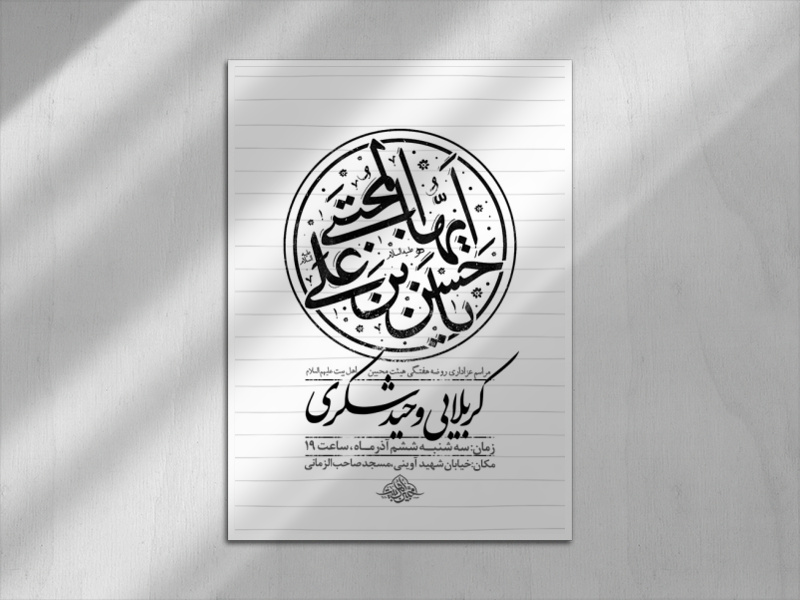 یا حسن بن علی
ایها المجتبی
علیه السلام
مراسم عزاداری روضه هفتگی هیئت محبین اهل بیت علیهم السلام
کربلایی وحید شکری
زمان: سه شنبه ششم آذر ماه، ساعت ۱۹
مکان: خیابان شهید آوینی، مسجد صاحب الزمانی